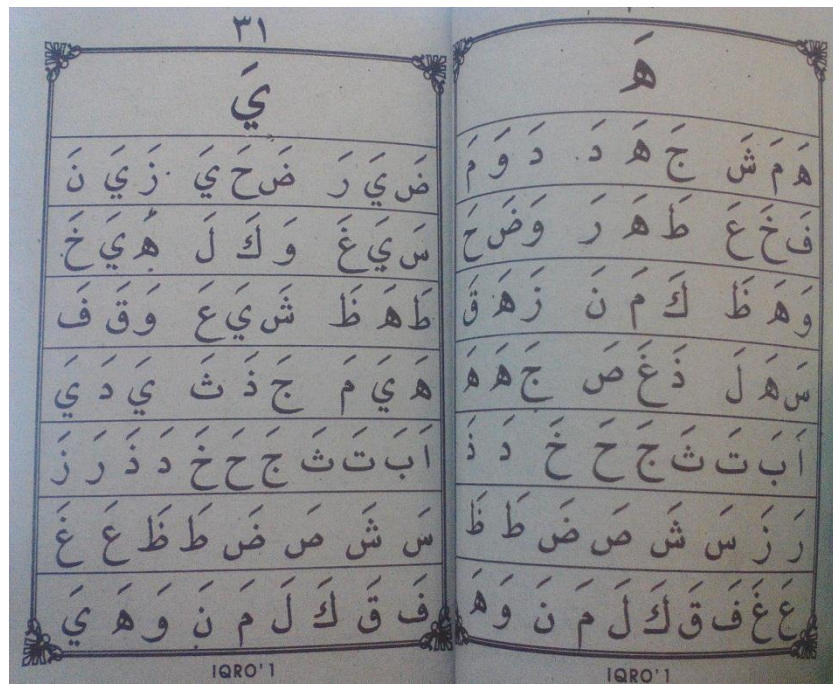 هَ
هَ مَ شَ جَ هَ دَ دَ وَ مَ
فَ خَ عَ طَ هَ رَ وَ ضَ حَ
وَ هَ ظَ كَ مَ نَ زَ هَ قَ
سَ هَ لَ ذَ غَ صَ جَ هَ هَ
اَ بَ تَ ثَ جَ حَ خَ دَ ذَ
رَ زَ سَ شَ صَ ضَ طَ ظَ
عَ غَ فَ قَ كَ لَ مَ نَ وَ هَ
IQRO' 1
٣١
يَ
ضَ يَ رَ ضَ حَ يَ زَ يَ نَ
سَ يَ غَ وَ كَ لَ هَ يَ خَ
طَ هَ ظَ شَ يَ عَ وَ قَ فَ
هَ يَ مَ جَ ذَ ثَ يَ دَ يَ
اَ بَ تَ ثَ جَ حَ خَ دَ ذَ رَ زَ
سَ شَ صَ ضَ طَ ظَ عَ غَ
فَ قَ كَ لَ مَ نَ وَ هَ يَ
IQRO' 1